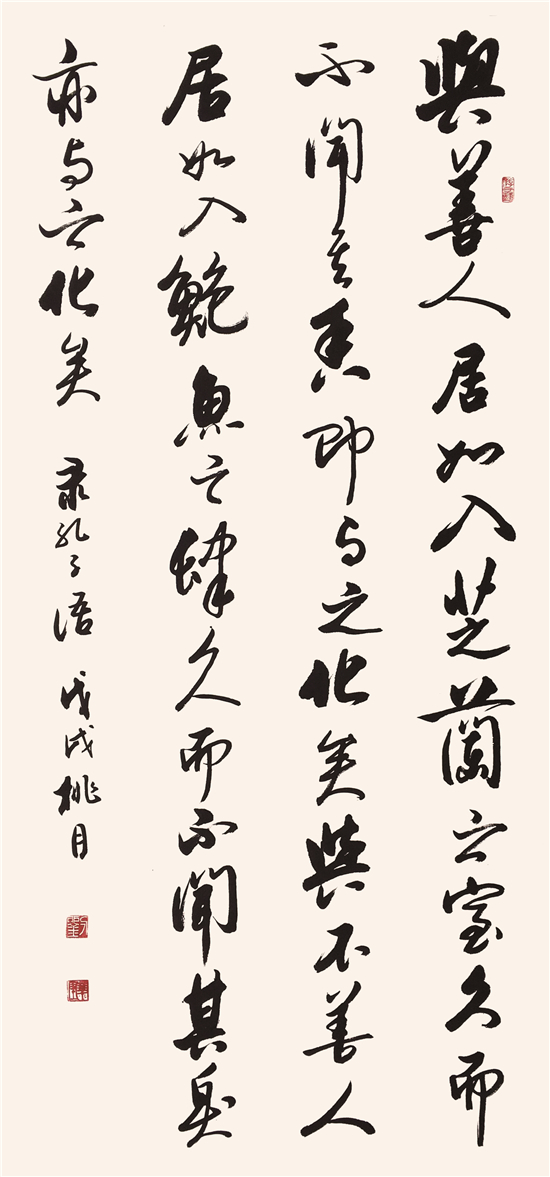 與善人居如入芝蘭之室久而
不聞其香即与之化矣與不善人
居如入鮑魚之肆久而不聞其臭
亦与之化矣 录孔子语 戊戌桃月